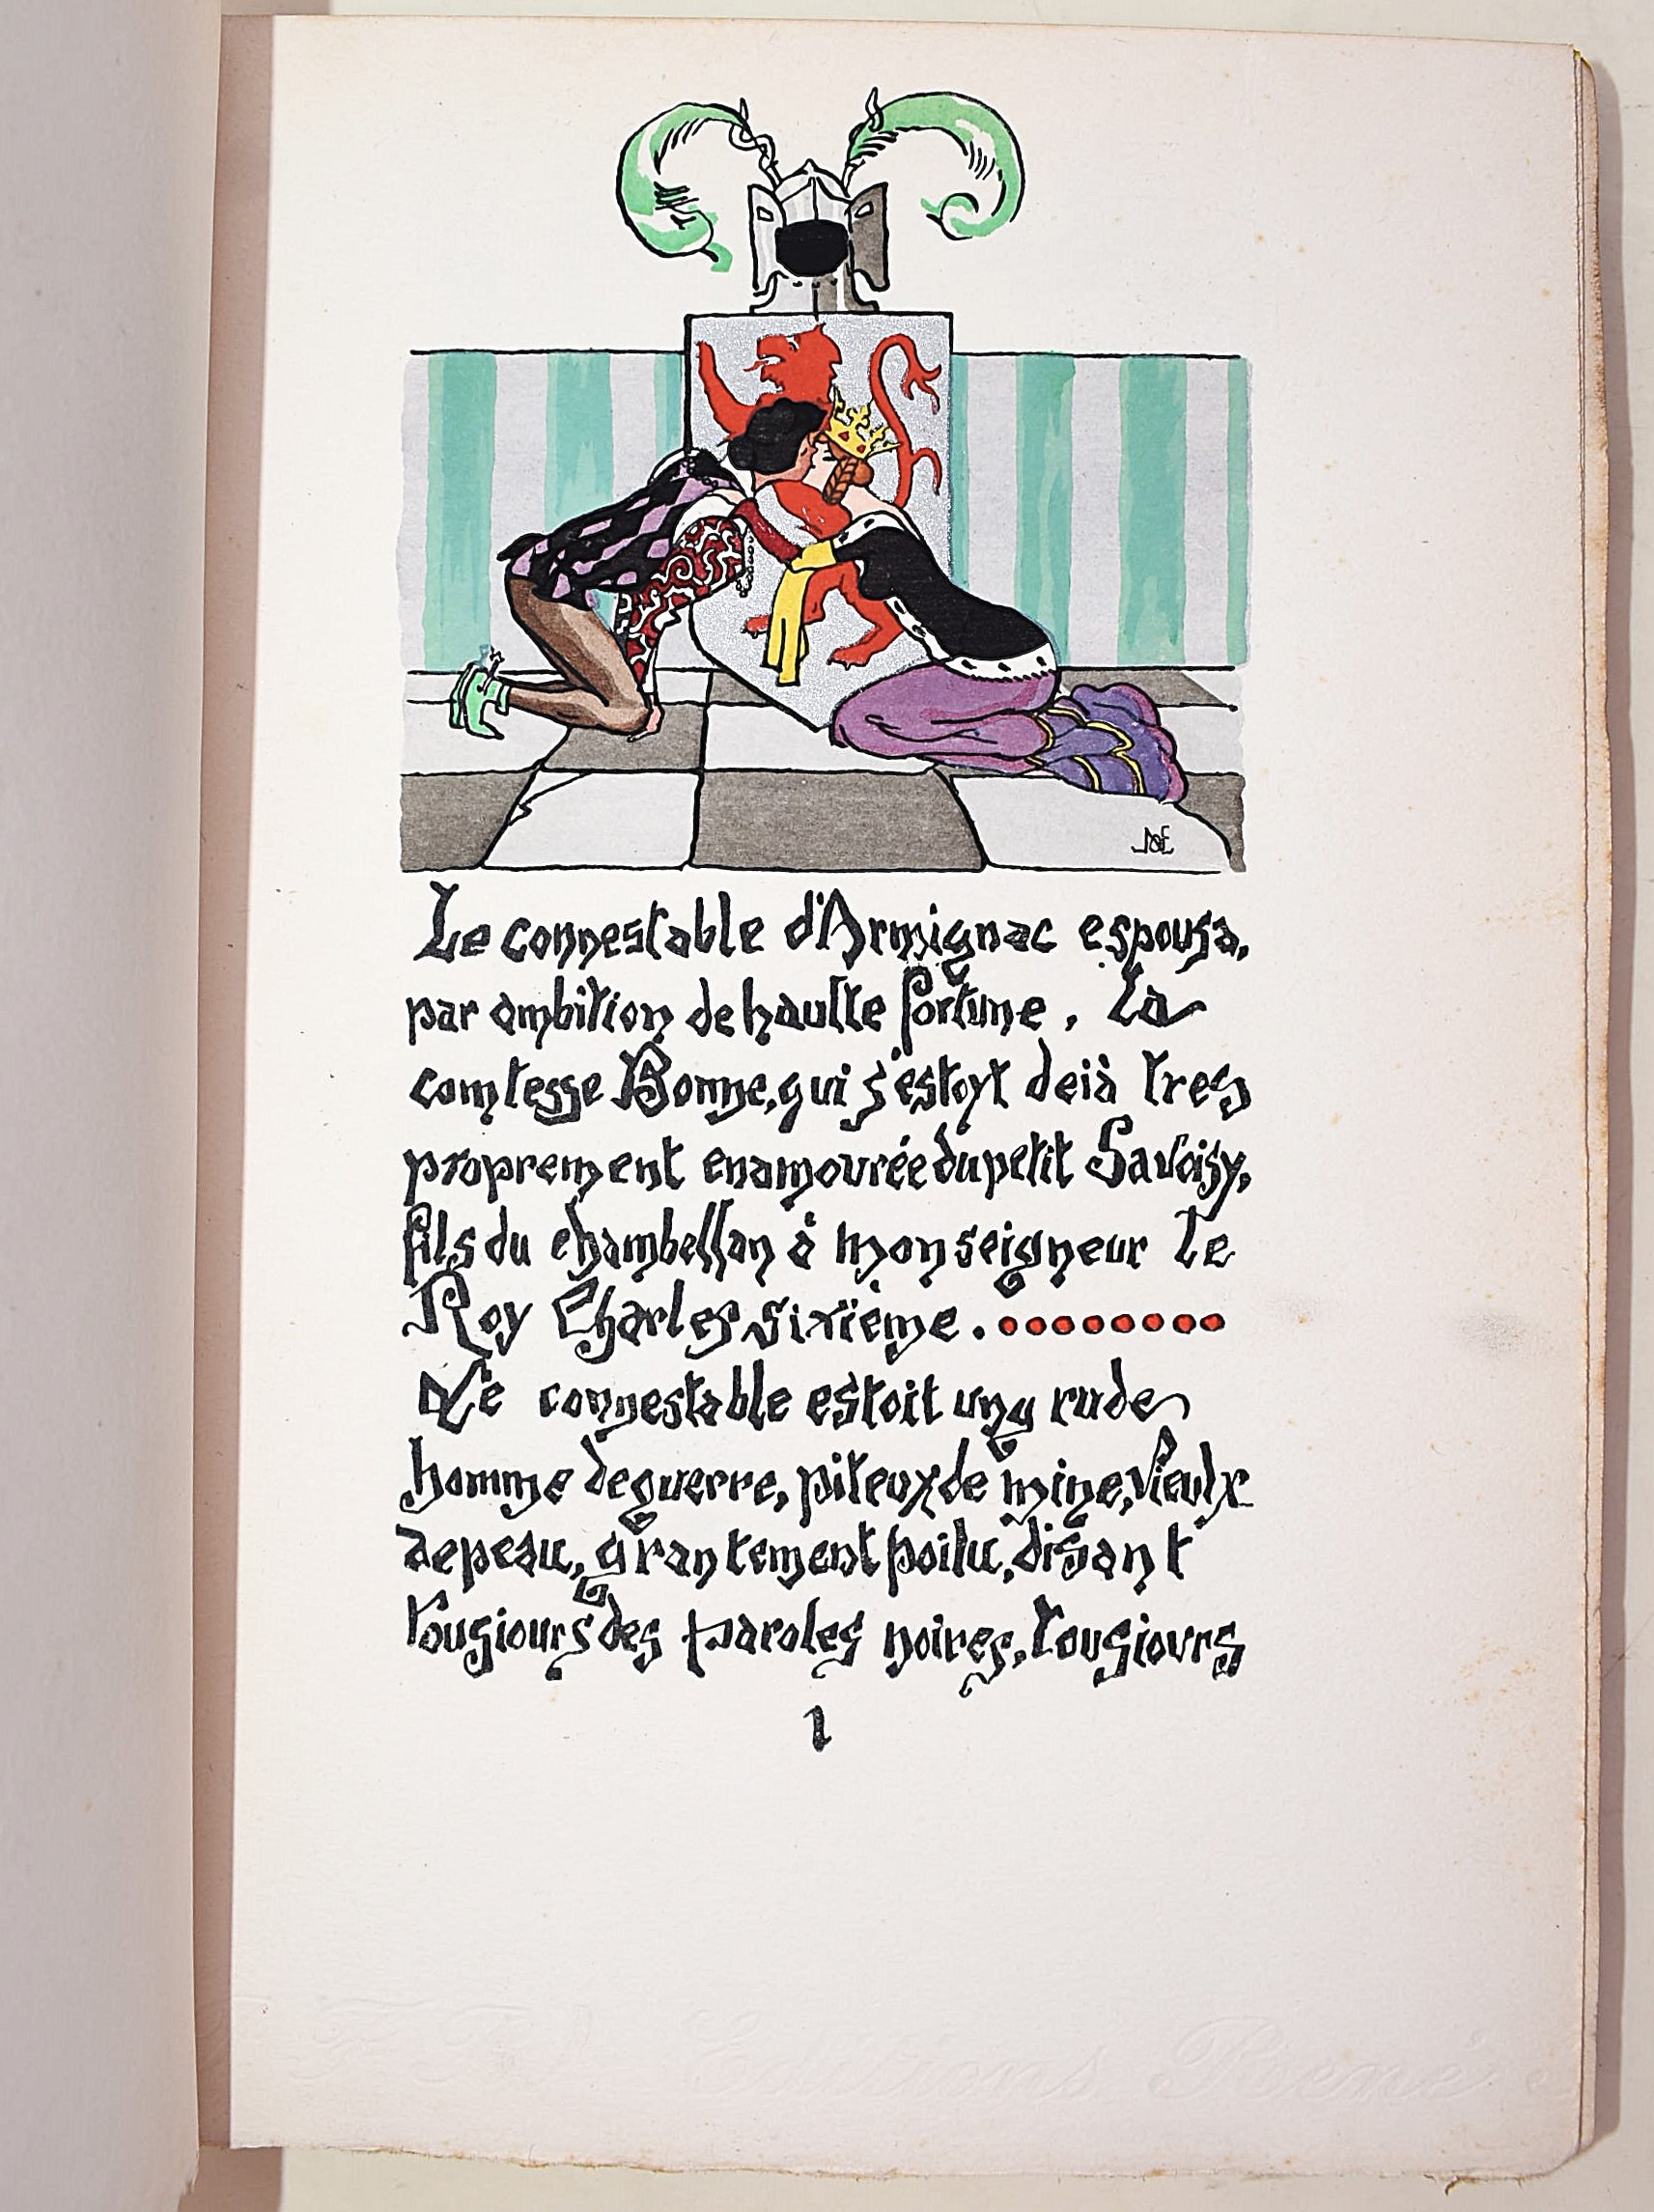 JOE
Le connestable d'Armignac espousa,
par ambition de haulte fortune, la
comtesse Bonne, qui s'estoyt deià tres
proprement enamourée du petit Savoisy,
fils du chambellan à monseigneur le
Roy Charles sixième.
Le connestable estoit ung rude
homme de guerre, piteux de mine, vieulx
de peau, grantement poilu, disant
tousiours des paroles noires, tousiours
1
Editions René